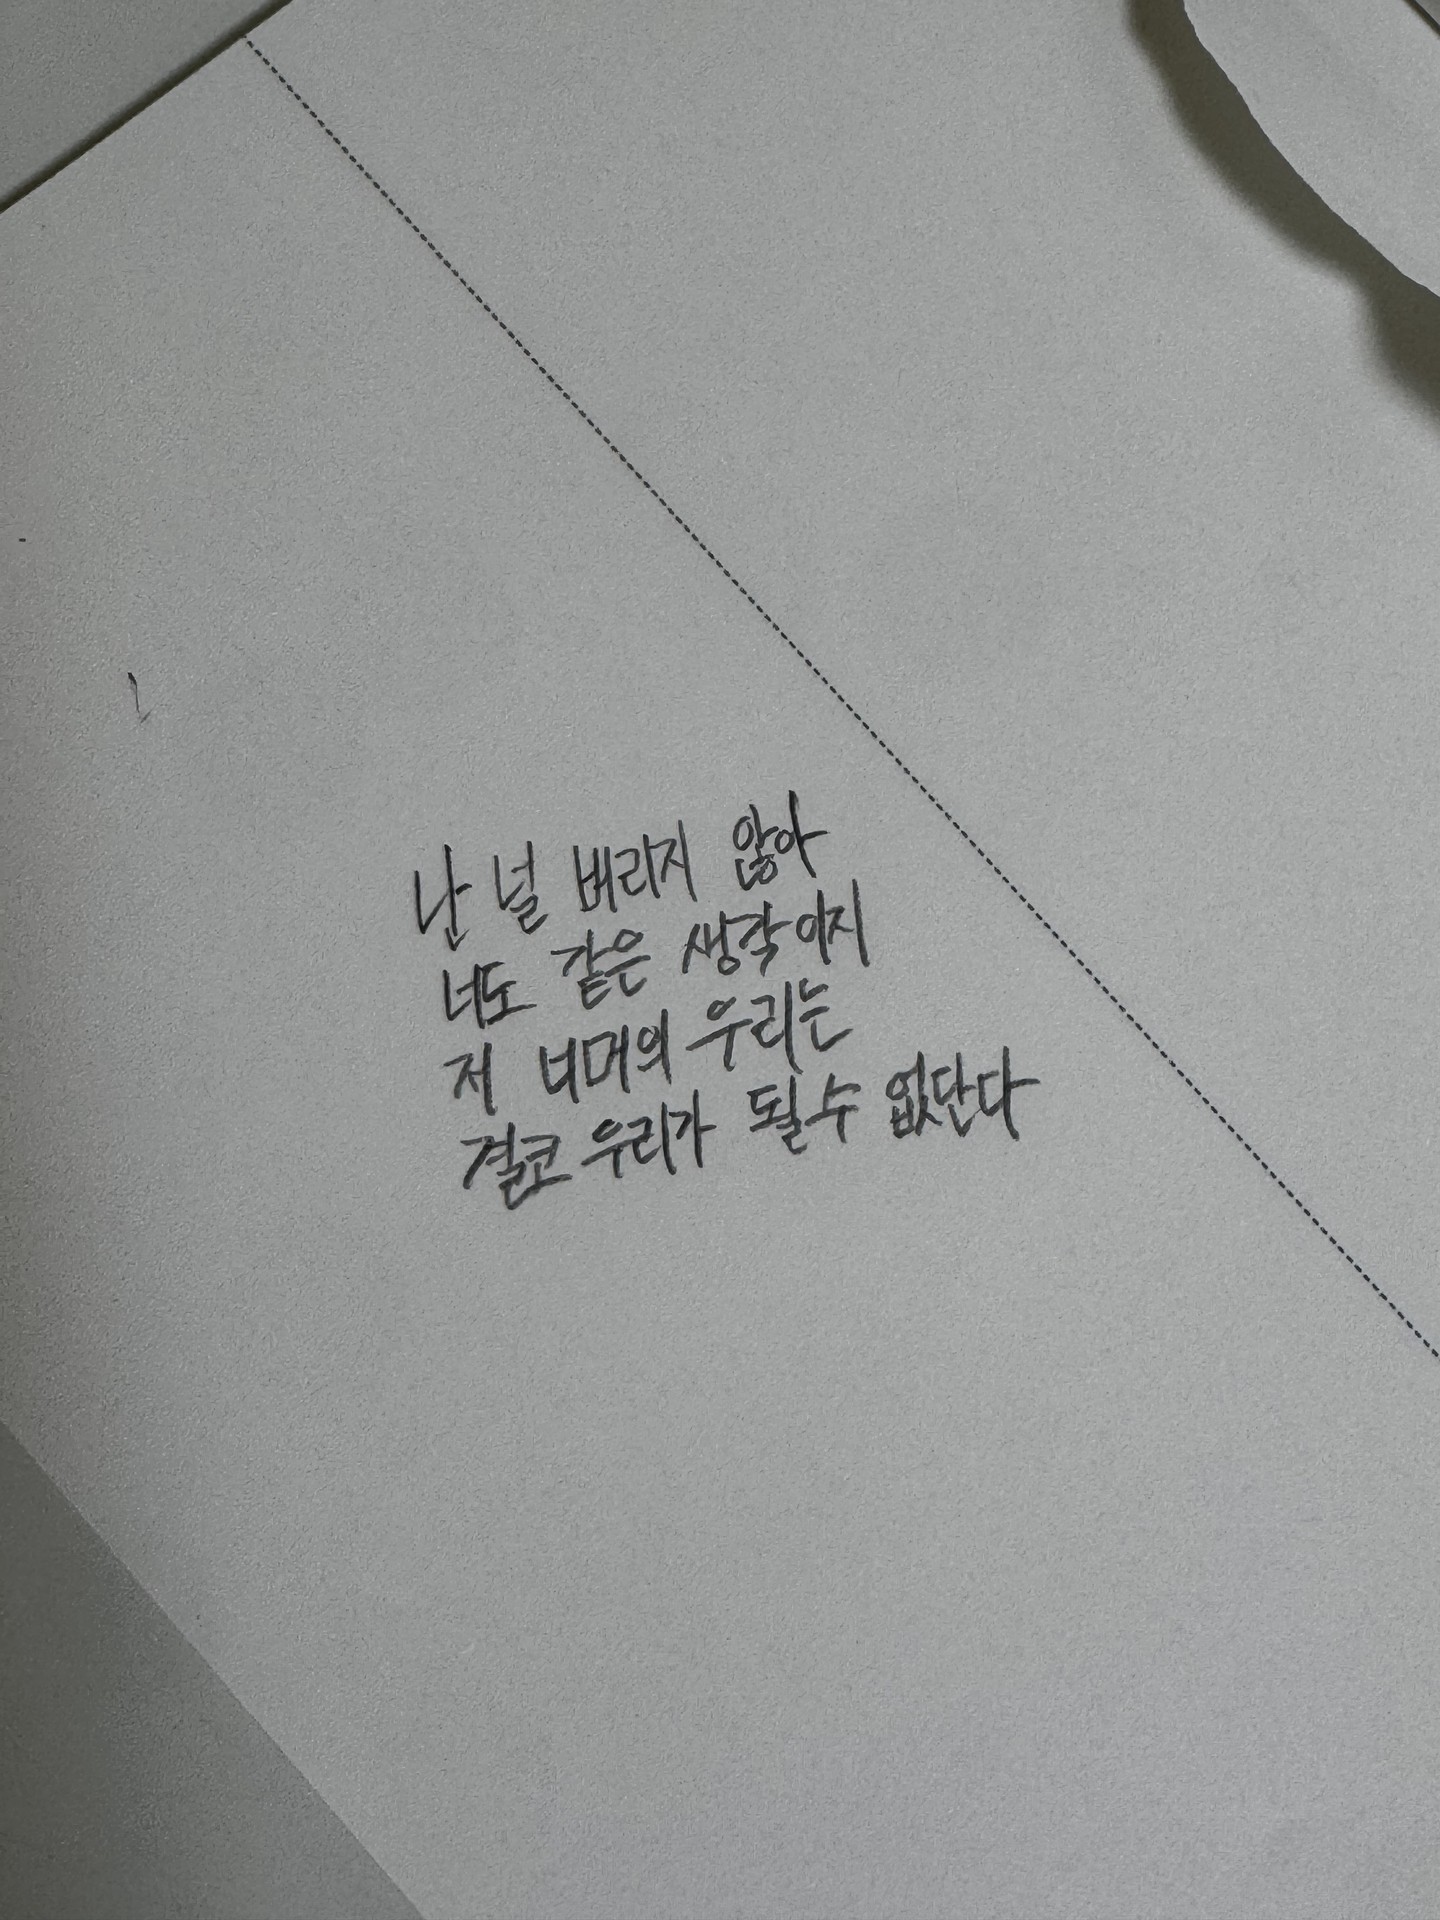 난 널 버리지 않아
너도 같은 생각이지
저 너머의 우리는
결코 우리가 될 수 없단다